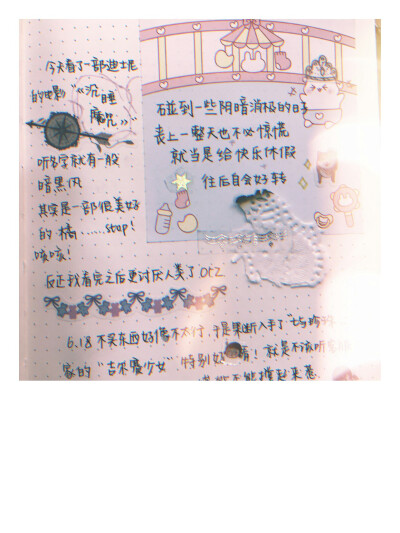 今天看了一部迪士尼
的电影“《沉睡
魔咒》”
听名字就有一股
暗黑风
其实是一部很美好
的 橘……stop!
咳咳!
反正我看完之后更讨厌人类了 OTZ
碰到一些阴暗消极的日子
丧上一整天也不必惊慌
就当是给快乐休假
往后自会好转
6.18 不买东西好像不太行,于是果断入手了
家的“吉尔爱少女”特别好 看! 就是不该听